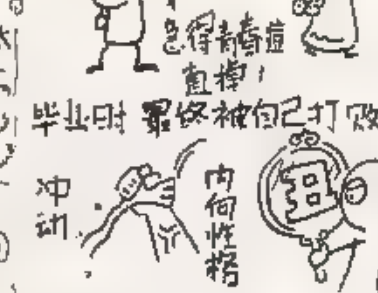 急得青春痘
直掉！
毕业时 最终被自己打败
冲
动
内
向
性
格